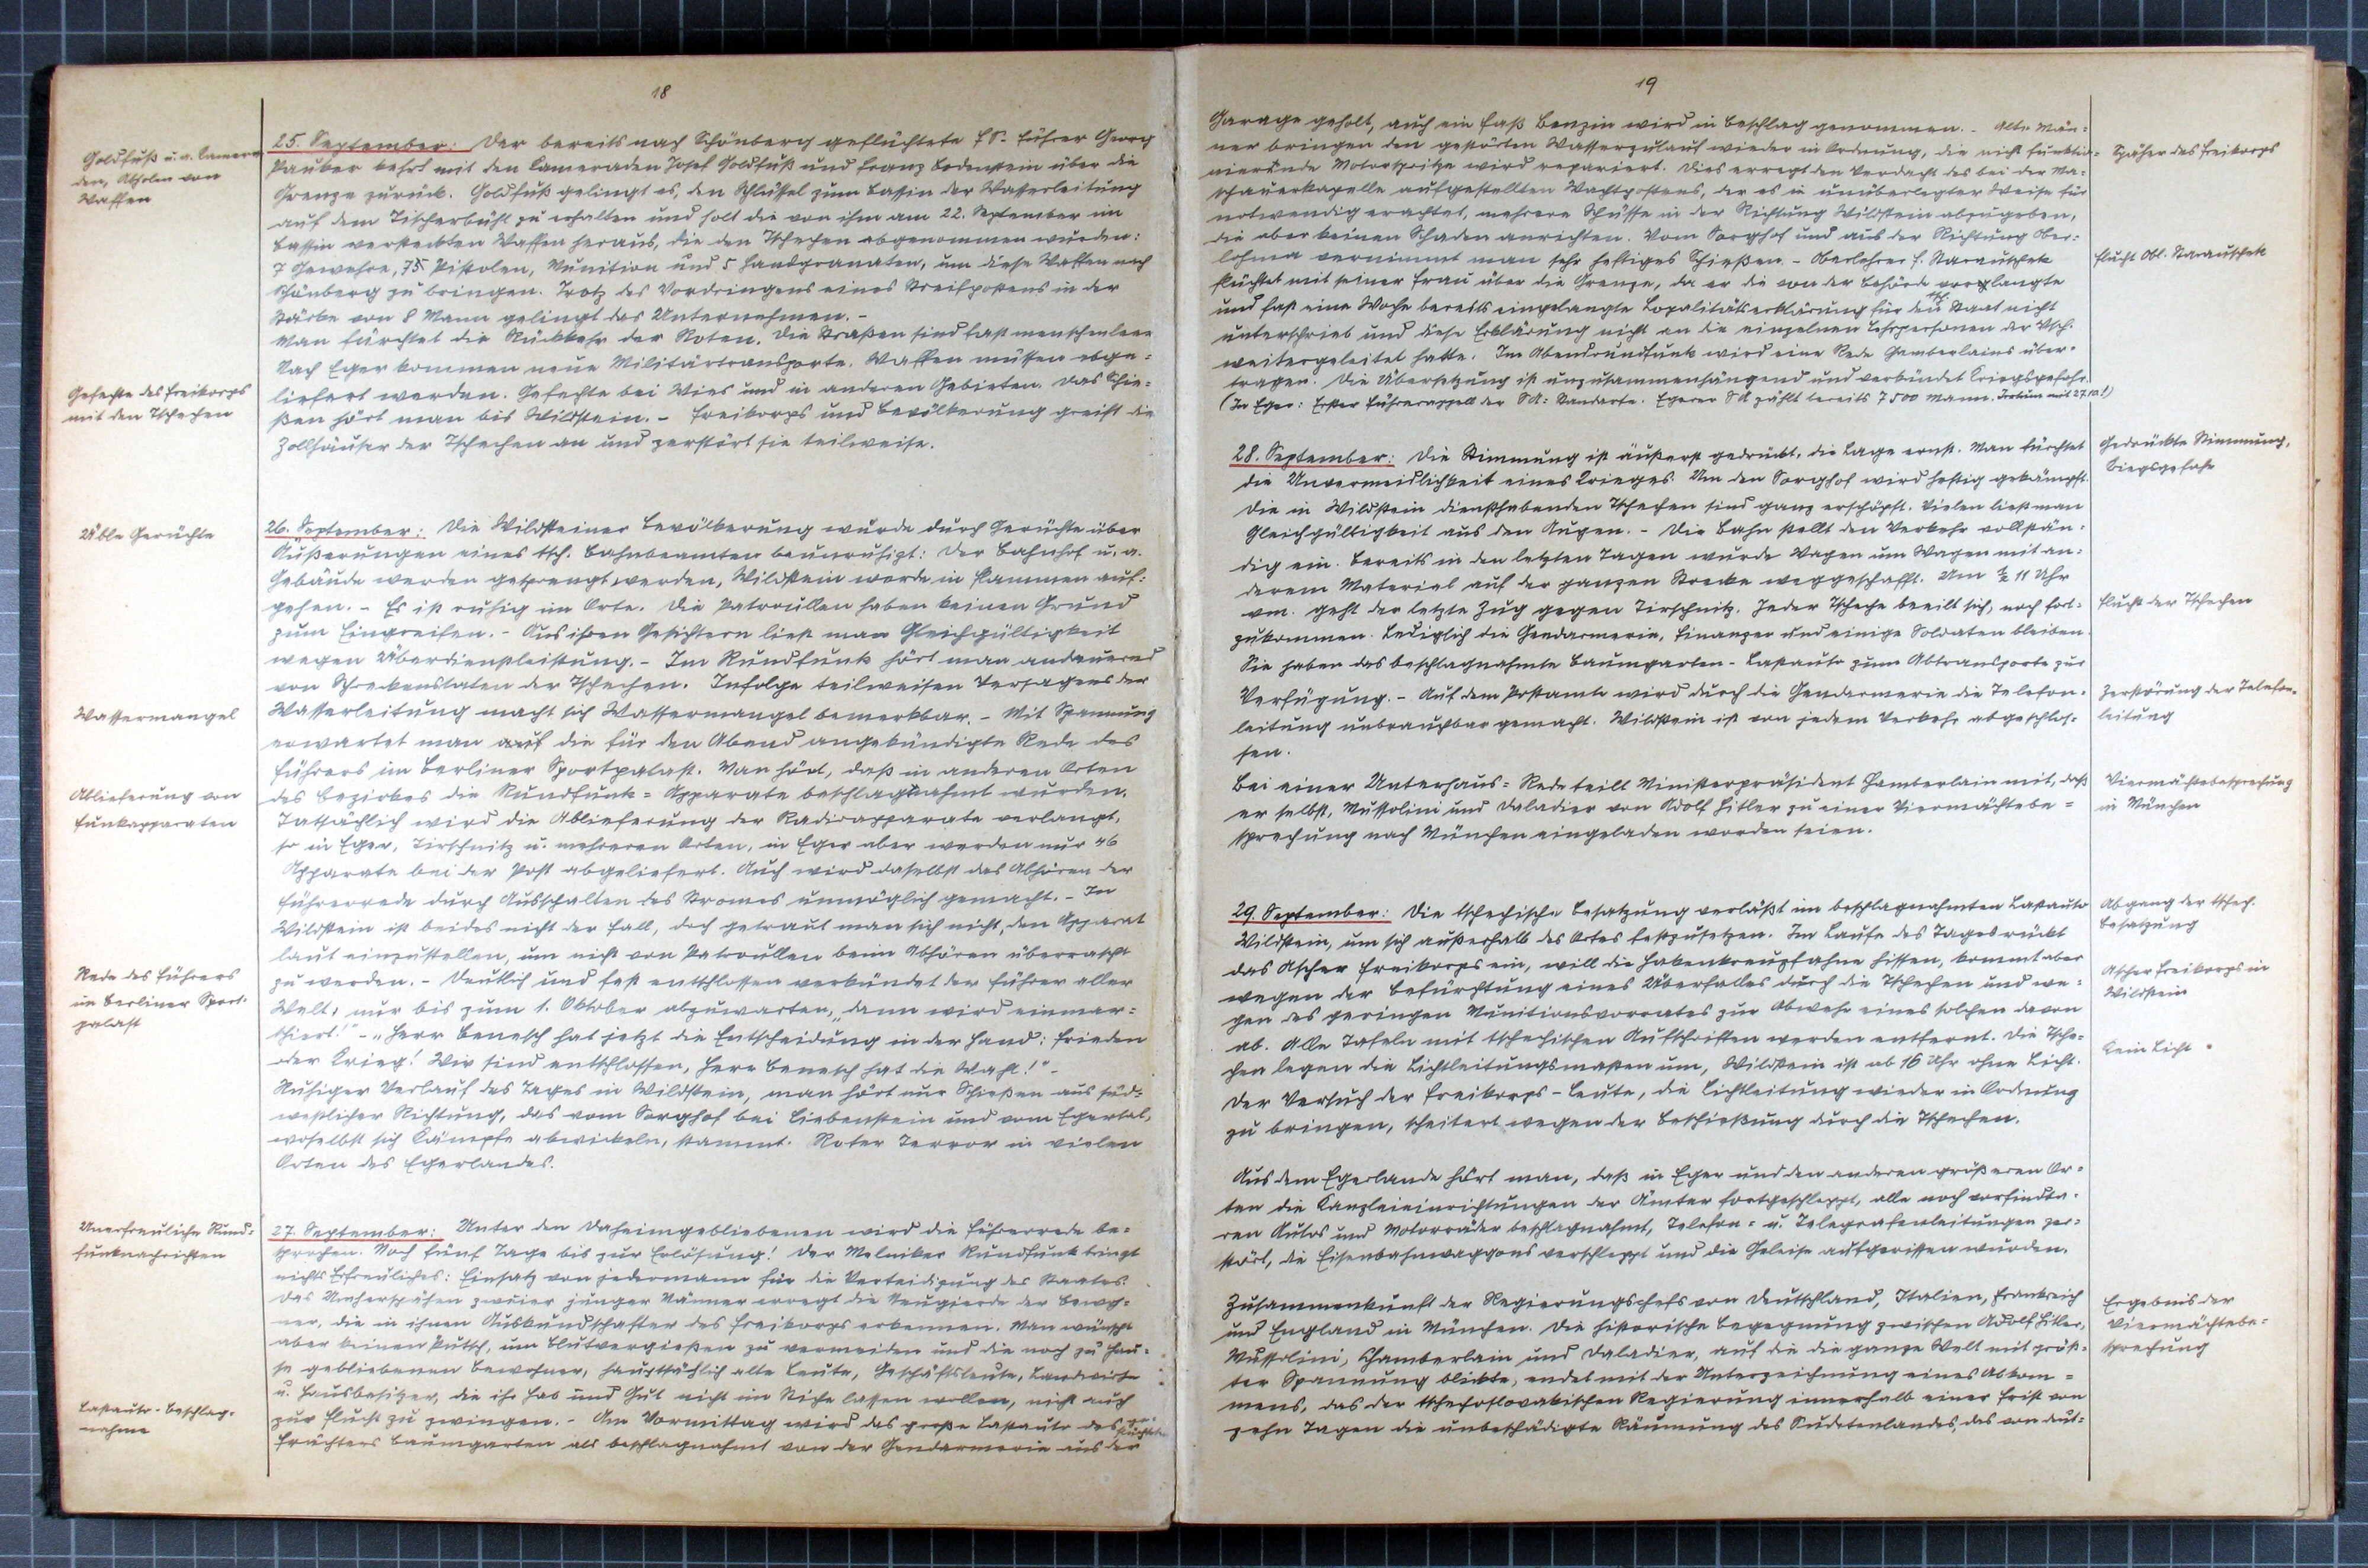 18
Goldfuß u. a. Kamera-
den, Abholen von
Waffen
25. September: Der bereits nach Schönberg geflüchtete FS-Führer Georg
Pauker kehrt mit den Kameraden Josef Goldfuß und Franz Bodenstein über die
Grenze zurück. Goldfuß gelingt es, den Schlüssel zum Bassin der Wasserleitung
auf dem Tischerbühl zu erhalten und holt die von ihm am 22. September im
Bassin versteckten Waffen heraus, die den Tschechen abgenommen wurden:
7 Gewehre, 75 Pistolen, Munition und 5 Handgranaten, um diese Waffen nach
Schönberg zu bringen. Trotz des Vordringens eines Streifpostens in der
Stärke von 8 Mann gelingt das Unternehmen. -
Man fürchtet die Rückkehr der Roten. Die Straßen sind fast menschenleer
Nach Eger kommen neue Militärtransporte. Waffen müssen abge-
Gefechte des Freikorps
mit den Tschechen
liefert werden. Gefechte bei Wies und in anderen Gebieten. Das Schie-
ßen hört man bis Wildstein. - Freikorps und Bevölkerung greift die
Zollhäuser der Tschechen an und zerstört sie teilweise.
Üble Gerüchte
26. September: Die Wildsteiner Bevölkerung wurde durch Gerüchte über
Äußerungen eines tsch. Bahnbeamten beunruhigt: Der Bahnhof u. a.
Gebäude werden gesprengt werden, Wildstein werde in Flammen auf-
gehen. - Es ist ruhig im Orte. Die Patrouillen haben keinen Grund
zum Eingreifen. - Aus ihren Gesichtern liest man Gleichgültigkeit
wegen Überdienstleistung. - Im Rundfunk hört man andauernd
von Schreckenstaten der Tschechen. Infolge teilweisen Versagens der
Wassermangel
Wasserleitung macht sich Wassermangel bemerkbar. - Mit Spannung
erwartet man auf die für den Abend angekündigte Rede des
Führers im Berliner Sportpalast. Man hört, daß in anderen Orten
Ablieferung von
Funkapparaten
des Bezirkes die Rundfunk-Apparate beschlagnahmt wurden.
Tatsächlich wird die Ablieferung der Radioapparate verlangt,
so in Eger, Tirschnitz u. mehreren Orten, in Eger aber werden nur 46
Apparate bei der Post abgeliefert. Auch wird daselbst das Abhören der
Führerrede durch Ausschalten des Stromes unmöglich gemacht. - In
Wildstein ist beides nicht der Fall, doch getraut man sich nicht, den Apparat
laut einzustellen, um nicht von Patrouillen beim Abhören überrascht
Rede des Führers
im Berliner Sport-
palast
zu werden. - Deutlich und fest entschlossen verkündet der Führer aller
Welt, nur bis zum 1. Oktober abzuwarten, „dann wird einmar-
schiert!" - „Herr Benesch hat jetzt die Entscheidung in der Hand: Frieden
oder Krieg! Wir sind entschlossen, Herr Benesch hat die Wahl!" -
Ruhiger Verlauf des Tages in Wildstein, man hört nur Schießen aus süd-
westlicher Richtung, das vom Sorghof bei Liebenstein und vom Egertal,
woselbst sich Kämpfe abwickeln, stammt. Roter Terror in vielen
Orten des Egerlandes.
Unerfreuliche Rund-
funknachrichten
27. September: Unter den Daheimgebliebenen wird die Führerrede be-
sprochen. Noch fünf Tage bis zur Erlösung! Der Melniker Rundfunk bringt
nichts Erfreuliches: Einsatz von jedermann für die Verteidigung des Staates.
Das Umherspähen zweier junger Männer erregt die Neugierde der Bewoh-
ner, die in ihnen Auskundschafter des Freikorps erkennen. Man wünscht
aber keinen Putsch, um Blutvergießen zu vermeiden und die noch zu Hau-
se gebliebenen Bewohner, hauptsächlich alte Leute, Geschäftsleute, Landwirte
u. Hausbesitzer, die ihr Hab und Gut nicht im Stiche lassen wollen, nicht auch
Lastauto-Beschlag-
nahme
zur Flucht zu zwingen. - Am Vormittag wird das große Lastauto des
Frächters Baumgarten als beschlagnahmt von der Gendarmerie aus der
19
Garage geholt, auch ein Faß Benzin wird in Beschlag genommen. - Alte Män-
ner bringen den gestörten Wasserzulauf wieder in Ordnung, die nicht funktio-
Späher des Freikorps
nierende Motorspritze wird repariert. Dies erregt den Verdacht des bei der Ma-
schauerkapelle aufgestellten Wachtpostens, der es in unüberlegter Weise für
notwendig erachtet, mehrere Schüsse in der Richtung Wildstein abzugeben,
die aber keinen Schaden anrichten. Vom Sorghof und aus der Richtung Ober-
lohma vernimmt man sehr heftiges Schießen. - Oberlehrer F. Starauschek
Flucht Obl. Starauschek
flüchtet mit seiner Frau über die Grenze, da er die von der Behörde verlangte
und fast eine Woche bereits eingelangte Loyalitätserklärung für den tsch. Staat nicht
unterschrieb und diese Erklärung nicht an die einzelnen Lehrpersonen der Vsch.
weitergeleitet hatte. Im Abendrundfunk wird eine Rede Chamberlains über-
tragen. Die Übersetzung ist unzusammenhängend und verkündet Kriegsgefahr.
(In Eger: Erster Führerappell der SA-Standarte. Egerer SA zählt bereits 7500 Mann. Irrtum mit 27.10.!)
28. September: Die Stimmung ist äußerst gedrückt, die Lage ernst. Man fürchtet
Gedrückte Stimmung,
Kriegsgefahr
die Unvermeidlichkeit eines Krieges. Um den Sorghof wird heftig gekämpft.
Die in Wildstein diensthabenden Tschechen sind ganz erschöpft. Vielen liest man
Gleichgültigkeit aus den Augen. - Die Bahn stellt den Verkehr vollstän-
dig ein. Bereits in den letzten Tagen wurde Wagen um Wagen mit an-
derem Material auf der ganzen Strecke weggeschafft. Um ½ 11 Uhr
vm. geht der letzte Zug gegen Tirschnitz. Jeder Tscheche beeilt sich, noch fort-
Flucht der Tschechen
zukommen. Lediglich die Gendarmerie, Finanzer und einige Soldaten bleiben.
Sie haben das beschlagnahmte Baumgarten-Lastauto zum Abtransporte zur
Verfügung. - Auf dem Postamte wird durch die Gendarmerie die Telefon-
Zerstörung der Telefon-
leitung
leitung unbrauchbar gemacht. Wildstein ist von jedem Verkehr abgeschlos-
sen.
Bei einer Unterhaus-Rede teilt Ministerpräsident Chamberlain mit, daß
Viermächtebesprechung
in München
er selbst, Mussolini und Daladier von Adolf Hitler zu einer Viermächtebe-
sprechung nach München eingeladen worden seien.
29. September: Die tschechische Besatzung verläßt im beschlagnahmten Lastauto
Abgang der tschech.
Besatzung
Wildstein, um sich außerhalb des Ortes festzusetzen. Im Laufe des Tages rückt
das Ascher Freikorps ein, will die Hakenkreuzfahne hissen, kommt aber
Ascher Freikorps in
Wildstein
wegen der Befürchtung eines Überfalles durch die Tschechen und we-
gen des geringen Munitionsvorrates zur Abwehr eines solchen davon
ab. Alle Tafeln mit tschechischen Aufschriften werden entfernt. Die Tsche-
Kein Licht
chen legen die Lichtleitungsmasten um, Wildstein ist ab 16 Uhr ohne Licht.
Der Versuch der Freikorps-Leute, die Lichtleitung wieder in Ordnung
zu bringen, scheitert wegen der Beschießung durch die Tschechen.
Aus dem Egerlande hört man, daß in Eger und den anderen größeren Or-
ten die Kanzleieinrichtungen der Ämter fortgeschleppt, alle noch vorfindba-
ren Autos und Motorräder beschlagnahmt, Telefon- u. Telegrafenleitungen zer-
stört, die Eisenbahnwaggons verschleppt und die Geleise aufgerissen wurden.
Zusammenkunft der Regierungschefs von Deutschland, Italien, Frankreich
Ergebnis der
Viermächtebe-
sprechung
und England in München. Die historische Begegnung zwischen Adolf Hitler,
Mussolini, Chamberlain und Daladier, auf die die ganze Welt mit größ-
ter Spannung blickte, endet mit der Unterzeichnung eines Abkom-
mens, das der tschechoslovakischen Regierung innerhalb einer Frist von
zehn Tagen die unbeschädigte Räumung des Sudetenlandes, das von deut-